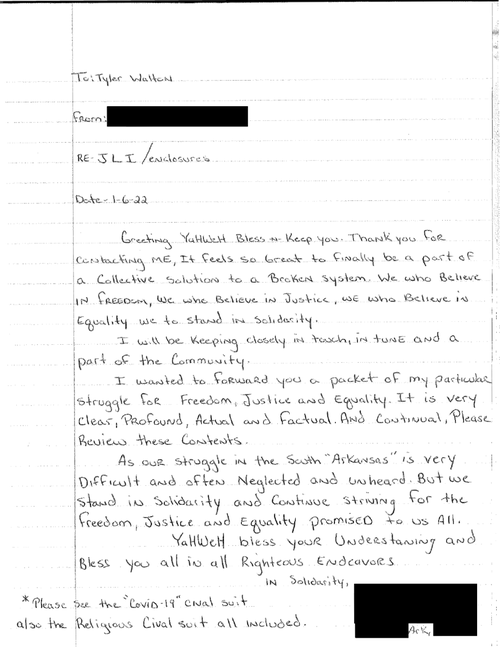 To: Tyler Walton
From:
RE- JLI/enclosures
Date- 1-6-22
Greeting YaHWeH Bless n Keep you. Thank you FOR
contacting ME, It feels so Great to finally be a part of
a Collective Solution to a Broken System. We who Believe
IN FREEDOM, We who Believe in Justice, WE who Believe in
Equality we to stand in Solidarity.
I will be Keeping closely in touch, in tune and a
part of the Community.
I wanted to forward you a packet of my particular
struggle for Freedom, Justice and Equality. It is very
Clear, Profound, Actual and Factual. And Continual, Please
Review these Contents.
As our struggle in the South "Arkansas" is very
Difficult and often Neglected and unheard. But we
Stand in Solidarity and Continue striving for the
freedom, Justice and Equality promised to us All.
YaHWeH bless your Understaning and
Bless you all in all Righteous Endeavors
in Solidarity,
* Please see the "Covid-19" cival suit
also the Religious Cival suit all included.
Ark,